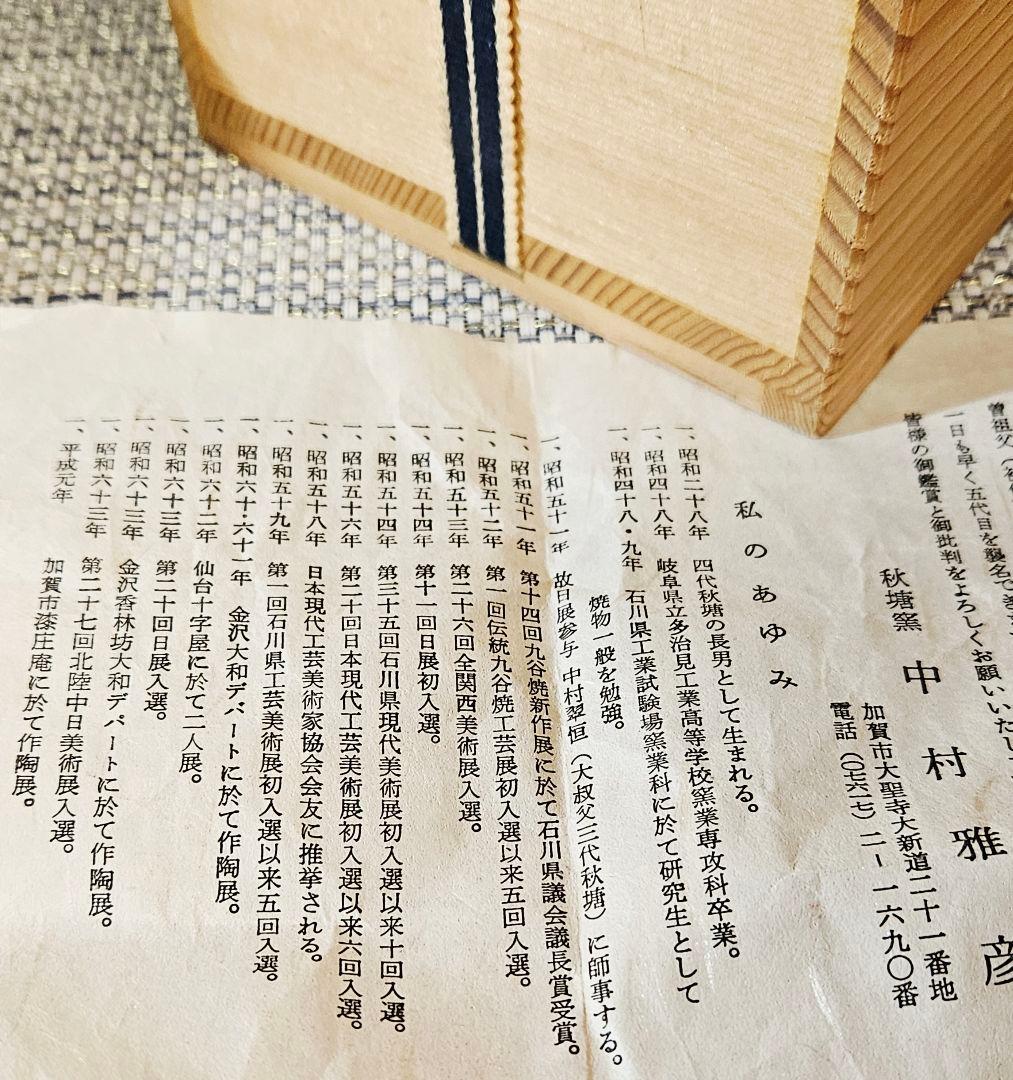 曽祖父（初
一日も早く五代目を襲名でき
皆様の御鑑賞と御批判をよろしくお願いいたし
秋塘窯　中村雅彦
加賀市大聖寺大新道二十一番地
電話（〇七六一七）二ー一六九〇番
私のあゆみ
一、昭和二十八年　四代秋塘の長男として生まれる。
一、昭和四十八年　岐阜県立多治見工業高等学校窯業専攻科卒業。
一、昭和四十八・九年　石川県工業試験場窯業科に於て研究生として
焼物一般を勉強。
一、昭和五十一年　故日展参与　中村翠恒（大叔父三代秋塘）に師事する。
一、昭和五十一年　第十四回九谷焼新作展に於て石川県議会議長賞受賞。
一、昭和五十二年　第一回伝統九谷焼工芸展初入選以来五回入選。
一、昭和五十三年　第二十六回全関西美術展入選。
一、昭和五十四年　第十一回日展初入選。
一、昭和五十四年　第三十五回石川県現代美術展初入選以来十回入選。
一、昭和五十六年　第二十回日本現代工芸美術展初入選以来六回入選。
一、昭和五十八年　日本現代工芸美術家協会会友に推挙される。
一、昭和五十九年　第一回石川県工芸美術展初入選以来五回入選。
一、昭和六十・六十一年　金沢大和デパートに於て作陶展。
一、昭和六十二年　仙台十字屋に於て二人展。
一、昭和六十三年　第二十回日展入選。
一、昭和六十三年　金沢香林坊大和デパートに於て作陶展。
一、昭和六十三年　第二十七回北陸中日美術展入選。
一、平成元年　加賀市漆庄庵に於て作陶展。